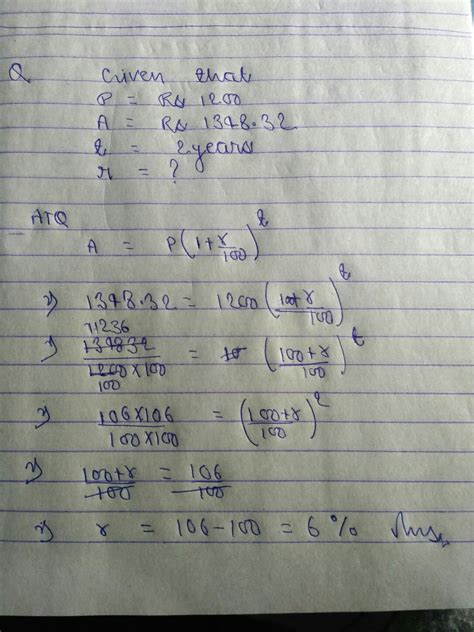 Q Given that
P = Rs 1200
A = Rs 1348.32
t = 2 years
r = ?
ATQ
A = P(1+r/100)^t
⇒ 1348.32 = 1200(100+r/100)^t
11236
⇒ 134832/1200×100 = (100+r/100)^t
100
⇒ 106×106/100×100 = (100+r/100)^2
⇒ 100+r/100 = 106/100
⇒ r = 106-100 = 6% Ans